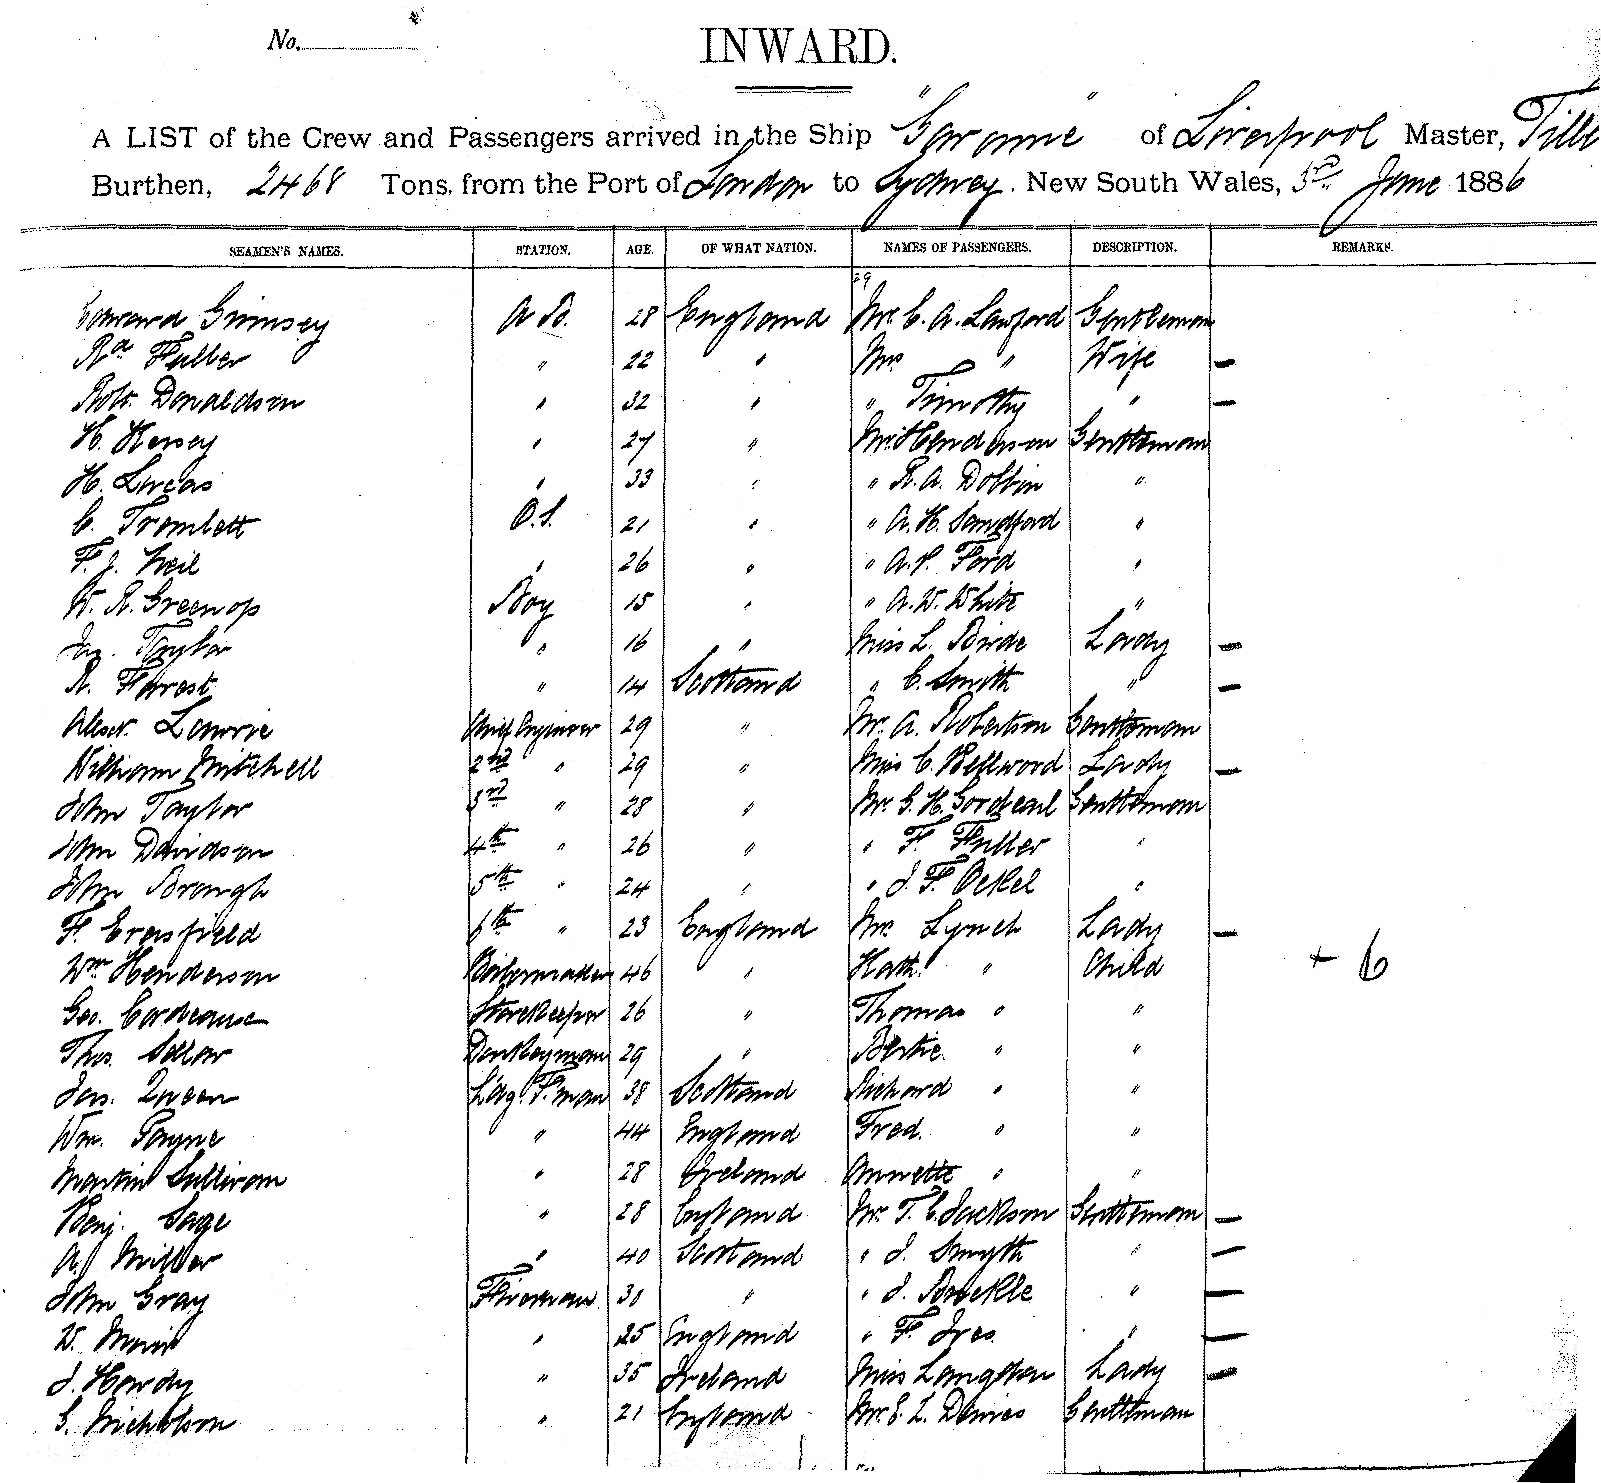 No.
INWARD.
A LIST of the Crew and Passengers arrived in the Ship "Garonne" of Liverpool Master, Tille
Burthen, 2468 Tons, from the Port of London to Sydney, New South Wales, 3rd June 1886
SEAMEN'S NAMES. STATION. AGE. OF WHAT NATION. NAMES OF PASSENGERS. DESCRIPTION. REMARKS.
Edward Grimsey A B. 28 England Mr. C. A. Lawford Gentleman
Rd. Fuller " 22 " Mrs " Wife —
Robt. Donaldson " 32 " " Timothy " —
H. Hersey " 27 " Mr. Henderson Gentleman
H. Lucas " 33 " " R. A. Dobbin "
C. Tromlett O.S. 21 " " A. H. Sandford "
F. J. Weil " 26 " " A. P. Ford "
W. R. Greenop Boy 15 " " A. W. White "
Jas. Taylor " 16 " Miss L. Birde Lady —
R. Forrest " 14 Scotland " C. Smith " —
Alexr. Lawrie Chief Engineer 29 " Mr. A. Robertson Gentleman
William Mitchell 2nd " 29 " Miss C. Bellwood Lady —
John Taylor 3rd " 28 " Mr. G. H. Gordearl Gentleman
John Davidson 4th " 26 " " F. Fuller "
John Brough 5th " 24 " " J. F. Oekel "
F. Cransfield 6th " 23 England Mrs Lynch Lady —
Wm Henderson Boilermaker 46 " Kath. " Child + 6
Geo. Storekeeper 26 " Thomas " "
Thos. Sellar Donkeyman 29 " Bertie. " "
Jas. Queen L'dg. F.man 38 Scotland Richard " "
Wm. Payne " 44 England Fred. " "
Martin Sullivan " 28 Ireland Annette " "
Benj. Sage " 28 England Mr. T. C. Jackson Gentleman —
A. Miller " 40 Scotland " J. Smyth " —
John Gray Fireman 30 " " J. Brockle " —
W. " 25 England " F. Ives " —
J. Hardy " 35 Ireland Miss Langdon Lady —
G. Nicholson " 21 England Mr. E. L. Davies Gentleman